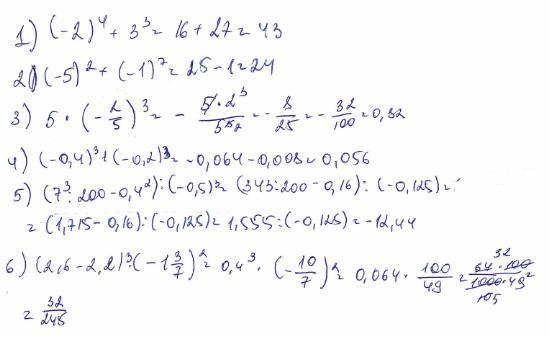 1) (-2)⁴ + 3³ = 16 + 27 = 43
2) (-5)² + (-1)⁷ = 25 - 1 = 24
3) 5 · (-2/5)³ = - 5·2³/5³ ² = - 8/25 = - 32/100 = 0,32
4) (-0,4)³ : (-0,2)³ = -0,064 - 0,008 = 0,056
5) (7³ : 200 - 0,4²) : (-0,5)³ = (343 : 200 - 0,16) : (-0,125) =
= (1,715 - 0,16) : (-0,125) = 1,555 : (-0,125) = -12,44
6) (2,6 - 2,2)³ · (-1 3/7)² = 0,4³ · (-10/7)² = 0,064 · 100/49 = 32 64 · 100/1000 · 49 ² 105
= 32/245